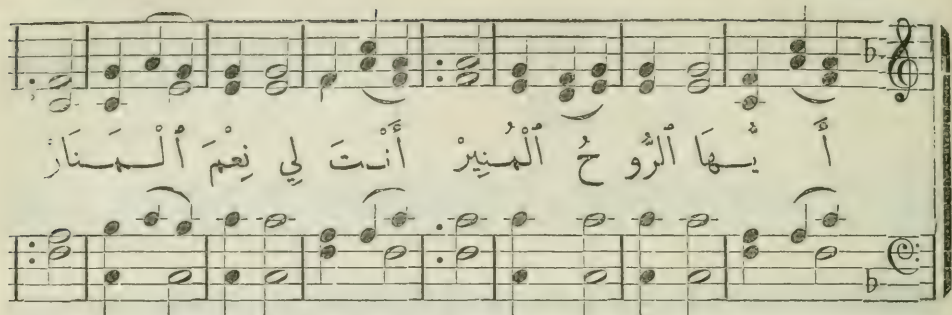 أَ يُّــهَا ٱلرُّو حُ ٱلْمُنِيرْ أَنْــتَ لِي نِعْمَ ٱلْــمَــنَارْ